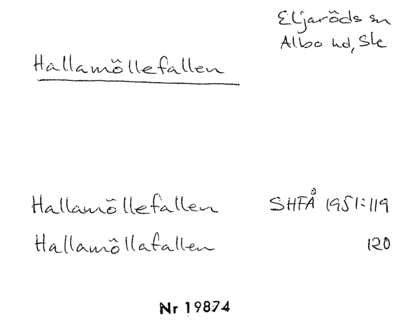 Eljaröds sn
Albo hd, Sk
Hallamöllefallen
Hallamöllefallen SHFÅ 1951:119
Hallamöllafallen 120
Nr 19874